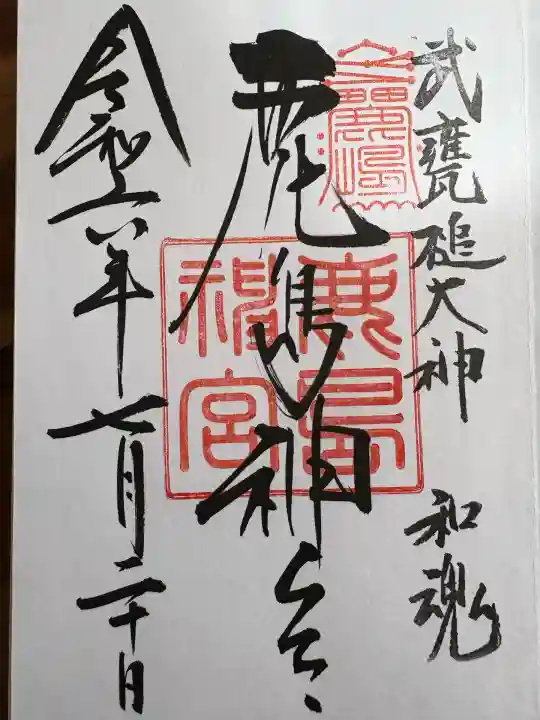 武甕槌大神 和魂
鹿嶋神宮
鹿島神宮
令和六年七月二十日